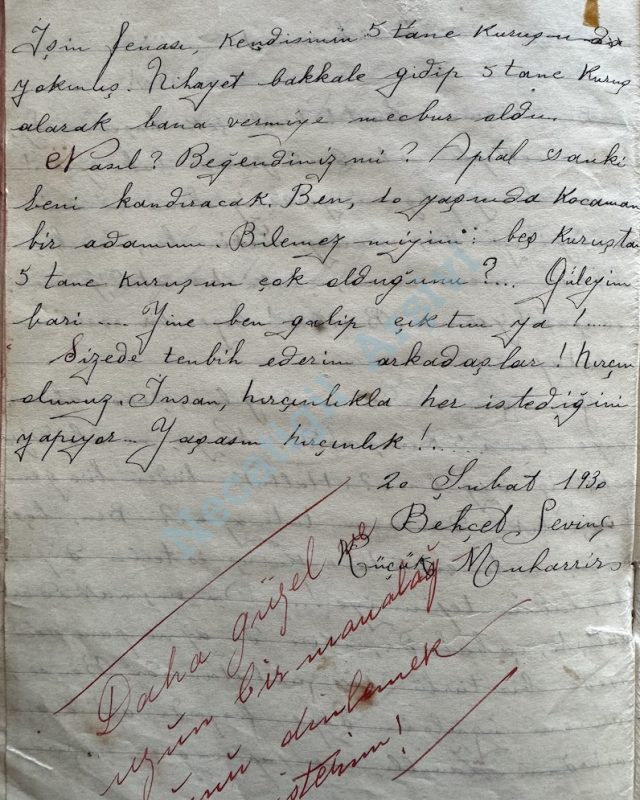 İşin fenası, kendisinin 5 tane kuruşu da
yokmuş. Nihayet bakkale gidip 5 tane kuruş
alarak bana vermiye mecbur oldu.
Nasıl? Beğendiniz mi? Aptal sanki
beni kandıracak. Ben, 10 yaşında kocaman
bir adamım. Bilemez miyim: beş kuruştan
5 tane kuruşun çok olduğunu?... Güleyim
bari .... Yine ben galip çıktım ya !....
Sizede tenbih ederim arkadaşlar! Hırçın
olunuz. İnsan, hırçınlıkla her istediğini
yapıyor... Yaşasın hırçınlık!....
20 Şubat 1930
Behçet Sevinç
Küçük Muharrir
Daha güzel ve
uzun bir
dinlemek
isterim!
Necatigil Arşivi